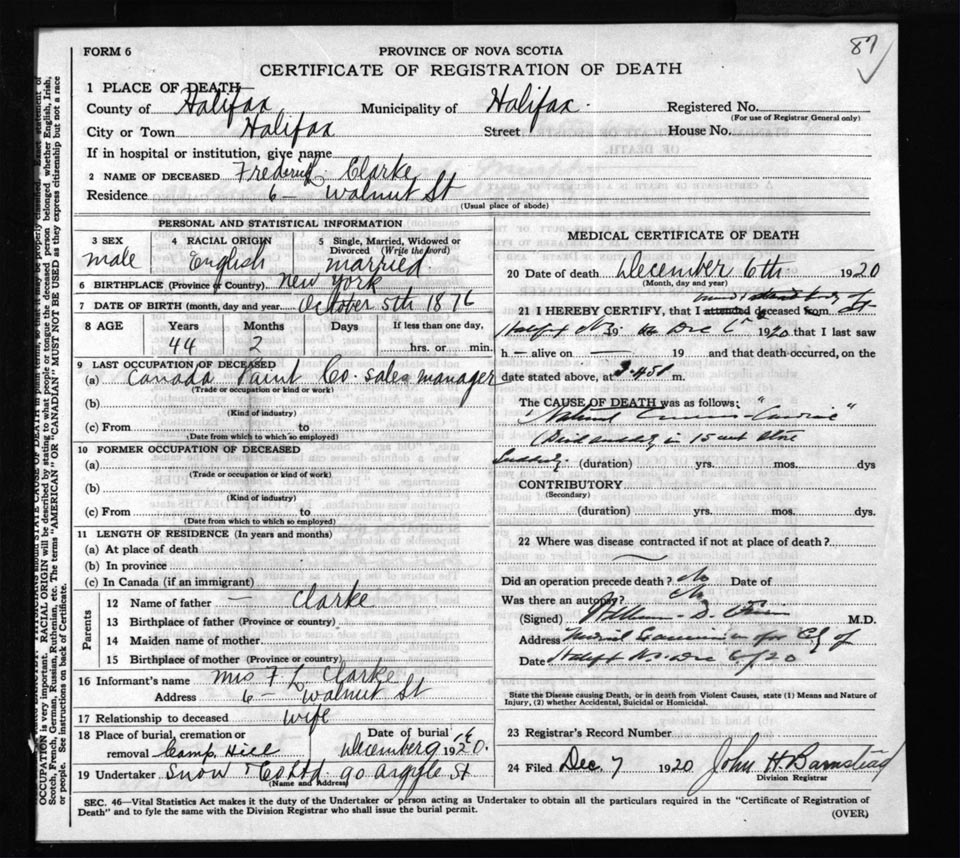 87
FORM 6
PROVINCE OF NOVA SCOTIA
CERTIFICATE OF REGISTRATION OF DEATH
1 PLACE OF DEATH
County of Halifax Municipality of Halifax Registered No.
(For use of Registrar General only)
City or Town Halifax Street House No.
If in hospital or institution, give name
2 NAME OF DECEASED Frederick L. Clarke
Residence 6 - Walnut St
(Usual place of abode)
PERSONAL AND STATISTICAL INFORMATION
3 SEX 4 RACIAL ORIGIN 5 Single, Married, Widowed or Divorced (Write the word)
male English married
6 BIRTHPLACE (Province or Country). New York
7 DATE OF BIRTH (month, day and year) October 5th 1876
8 AGE Years Months Days If less than one day,
44 2 hrs. or min.
9 LAST OCCUPATION OF DECEASED
(a) Canada Paint Co. sales manager
(Trade or occupation or kind of work)
(b)
(Kind of industry)
(c) From to
(Date from which to which so employed)
10 FORMER OCCUPATION OF DECEASED
(a)
(Trade or occupation or kind of work)
(b)
(Kind of industry)
(c) From to
(Date from which to which so employed)
11 LENGTH OF RESIDENCE (In years and months)
(a) At place of death
(b) In province
(c) In Canada (if an immigrant)
Parents
12 Name of father — Clarke
13 Birthplace of father (Province or country)
14 Maiden name of mother
15 Birthplace of mother (Province or country)
16 Informant's name Mrs F L Clarke
Address 6 - Walnut St
17 Relationship to deceased wife
18 Place of burial, cremation or Date of burial
removal Camp Hill December 9 1920.
19 Undertaker Snow & Co Ltd. 90 Argyle St
(Name and Address)
MEDICAL CERTIFICATE OF DEATH
20 Date of death December 6th 1920
(Month, day and year)
21 I HEREBY CERTIFY, that I attended deceased from
Dec 6 1920 that I last saw
h — alive on — 19 and that death occurred, on the
date stated above, at 3.45 m.
The CAUSE OF DEATH was as follows:
Natural Causes - "Cardiac"
(Died suddenly in 15 cent Store
Suddenly. (duration) yrs. mos. dys
CONTRIBUTORY
(Secondary)
(duration) yrs. mos. dys.
22 Where was disease contracted if not at place of death?
Did an operation precede death? No Date of
Was there an autopsy? No
(Signed) William D. M.D.
Address Medical Examiner for City of
Date Halifax N.S. Dec 6/20
State the Disease causing Death, or in death from Violent Causes, state (1) Means and Nature of
Injury, (2) whether Accidental, Suicidal or Homicidal.
23 Registrar's Record Number
24 Filed Dec 7 1920 John H. Barnstead
Division Registrar
SEC. 46—Vital Statistics Act makes it the duty of the Undertaker or person acting as Undertaker to obtain all the particulars required in the "Certificate of Registration of
Death" and to fyle the same with the Division Issuer who shall issue the burial permit.
(OVER)
OCCUPATION is very important. RACIAL ORIGIN will be described by stating to what people or tongue the deceased person belonged whether English, Irish,
Scotch, French, German, Russian, Ruthenian, etc. The terms "AMERICAN" OR "CANADIAN" MUST NOT BE USED as they express citizenship but not a race
or people. See instructions on back of Certificate.